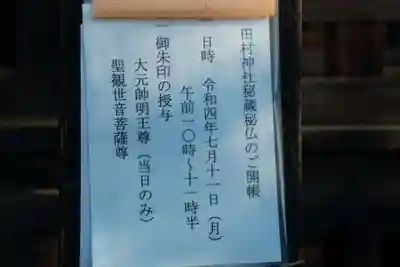 田村神社秘蔵秘仏のご開帳
日時　令和四年七月十一日（月）
午前一〇時～十一時半
一御朱印の授与
大元帥明王尊（当日のみ）
聖観世音菩薩尊